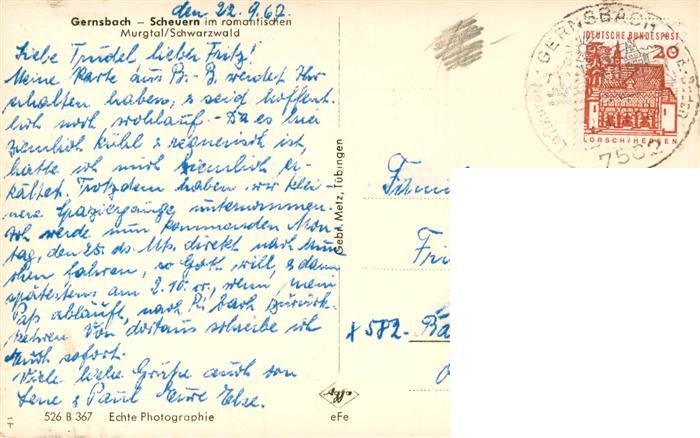 den 22.9.67.
Gernsbach – Scheuern im romantischen
Murgtal/Schwarzwald
Liebe Trudel, lieber Fritz!
Meine Karte aus B.-B. werdet Ihr
erhalten haben, & seid hoffent-
lich noch wohlauf. – Da es hier
ziemlich kühl & regnerisch ist,
hatte ich mich ziemlich er-
kältet. Trotzdem haben wir klei-
nere Spaziergänge unternommen.
Ich werde nun kommenden Mon-
tag, den 25. ds. Mts. direkt nach Mün
chen fahren, so Gott will, & dann
spätestens am 2.10. wenn mein
Paß abläuft, nach bach zurück-
kehren. Von dortaus schreibe ich
Euch sofort.
Viele liebe Grüße auch von
Lene & Paul Eure Else.
526 B 367 Echte Photographie
Gebr. Metz, Tübingen
Agfa
eFe
DEUTSCHE BUNDESPOST
20
LORSCH/HESSEN
GERNSBACH
7562
Fami
Fri
582-